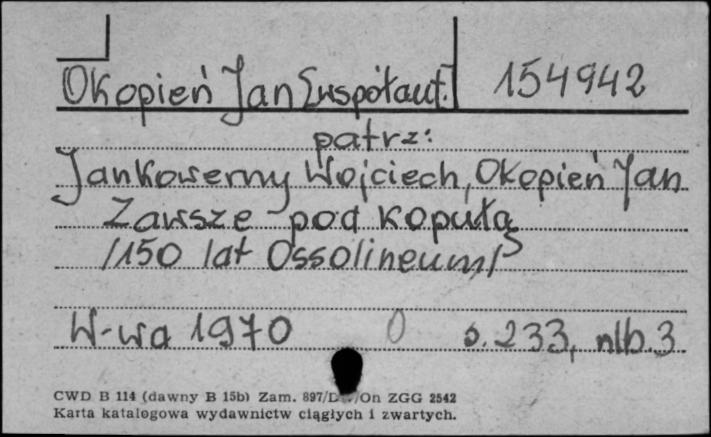 Okopień Jan [współaut.] 154942
patrz:
Jankowerny Wojciech, Okopień Jan
Zawsze pod kopułą
/150 lat Ossolineum/
W-wa 1970 0 s. 233, nlb. 3
CWD B 114 (dawny B 15b) Zam. 897/D /On ZGG 2542
Karta katalogowa wydawnictw ciągłych i zwartych.